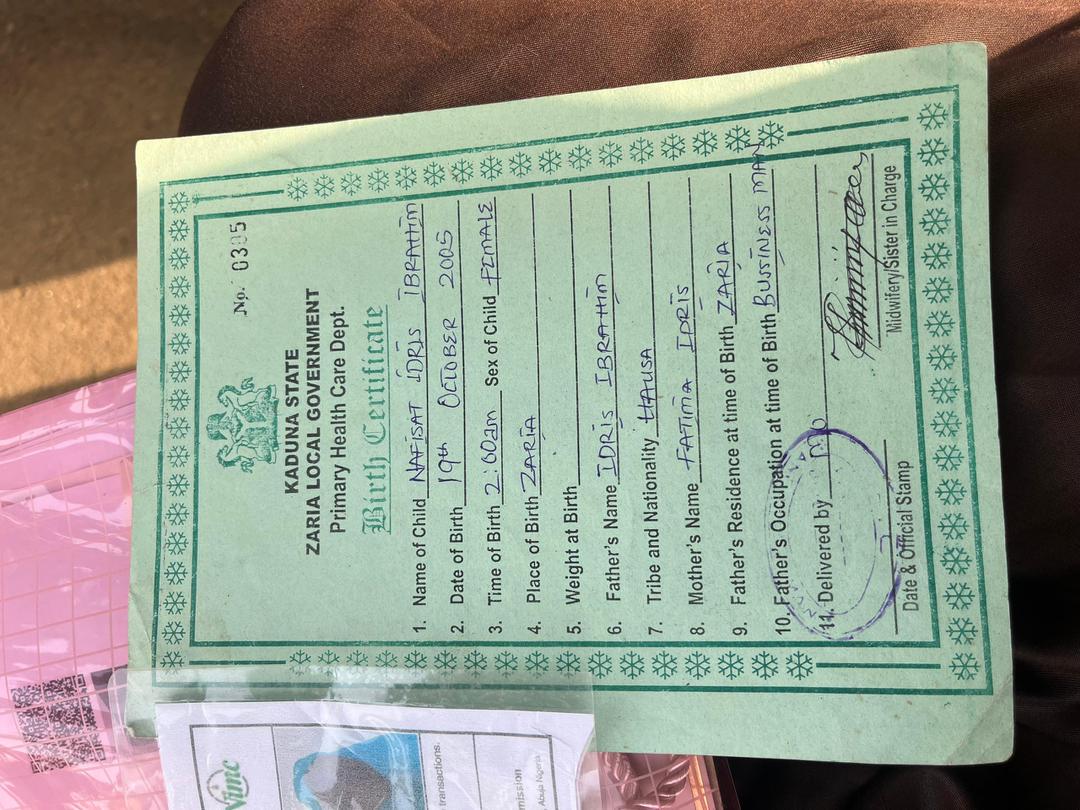 No. 0305
KADUNA STATE
ZARIA LOCAL GOVERNMENT
Primary Health Care Dept.
Birth Certificate
1. Name of Child NAFISAT IDRIS IBRAHIM
2. Date of Birth 19th OCTOBER 2005
3. Time of Birth 2:00am Sex of Child FEMALE
4. Place of Birth ZARIA
5. Weight at Birth
6. Father's Name IDRIS IBRAHIM
7. Tribe and Nationality HAUSA
8. Mother's Name FATIMA IDRIS
9. Father's Residence at time of Birth ZARIA
10. Father's Occupation at time of Birth BUSSINESS MAN
11. Delivered by
Date & Official Stamp
Midwifery/Sister in Charge
Nimc
transactions.
mission
Abuja Nigeria